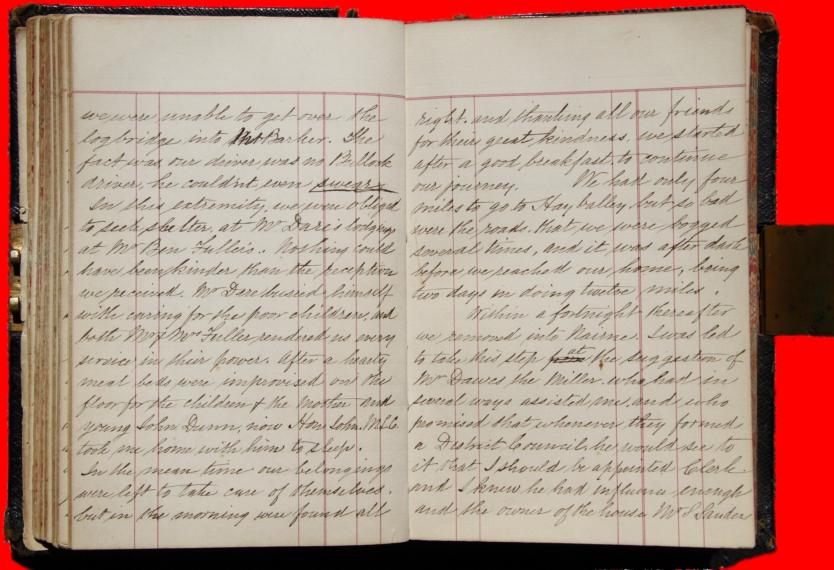 we were unable to get over the
logbridge into Mt Barker. The
fact was our driver was no Bullock
driver, he couldnt even swear.
In this extremity, we were obliged
to seek shelter, at Mr Dare's lodgings
at Mr Ben Fuller's. Nothing could
have been kinder than the reception
we received. Mr Dare busied himself
with caring for the poor children, and
both Mr & Mrs Fuller rendered us every
service in their power. After a hearty
meal beds were improvised on the
floor for the children & the mother and
young John Dunn, now Hon John. M.L.C.
took me home with him to sleep.
In the mean time our belongings
were left to take care of themselves.
but in the morning were found all
right. and thanking all our friends
for their great kindness, we started
after a good breakfast to continue
our journey. We had only four
miles to go to Hay Valley, but so bad
were the roads, that we were bogged
several times, and it was after dark
before we reached our home, being
two days in doing twelve miles.
Within a fortnight thereafter
we removed into Nairne. I was led
to take this step at the suggestion of
Mr Dawes the Miller. who had in
several ways assisted me. and who
promised that whenever they formed
a District Council, he would see to
it that I should be appointed Clerk.
and I knew he had influence enough
and the owner of the house Mr S Sander